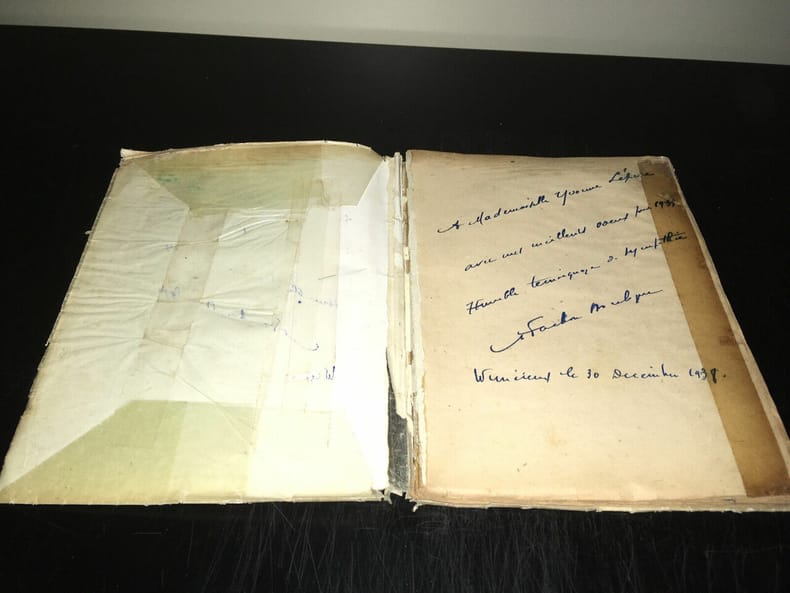 A Mademoiselle Yvonne
avec mes meilleurs voeux pour 1939
Humble témoignage de sympathie
Wimereux le 30 Decembre 1938.